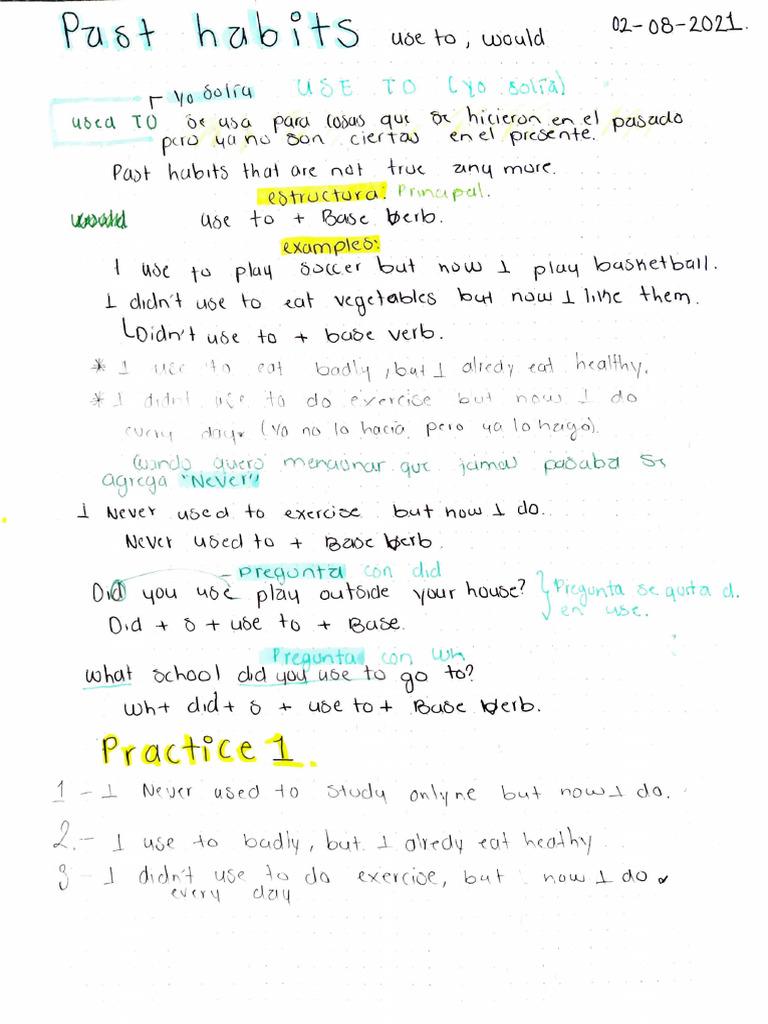 Past habits use to, would 02-08-2021.
Yo solía USE TO (yo solía)
used TO se usa para cosas que se hicieron en el pasado
pero ya no son ciertas en el presente.
Past habits that are not true any more.
estructura: Principal.
would use to + Base verb.
examples:
I use to play soccer but now I play basketball.
I didn't use to eat vegetables but now I like them.
Didn't use to + base verb.
* I use to eat badly, but I alredy eat healthy.
* I didnt use to do exercise but now I do
every day. (Yo no lo hacia pero ya lo hago).
Cuando quero mencionar que jamas pasaba se
agrega "Never"
I Never used to exercise but now I do.
Never used to + Base verb.
- pregunta con did
Did you use play outside your house? Pregunta se quita d.
en use.
Did + s + use to + Base.
Pregunta con wh
what school did you use to go to?
Wh+ did+ s + use to + Base verb.
Practice 1.
1 - I Never used to study onlyne but now I do.
2.- I use to badly, but I alredy eat heathy
3 - I didn't use to do exercise, but now I do
every day